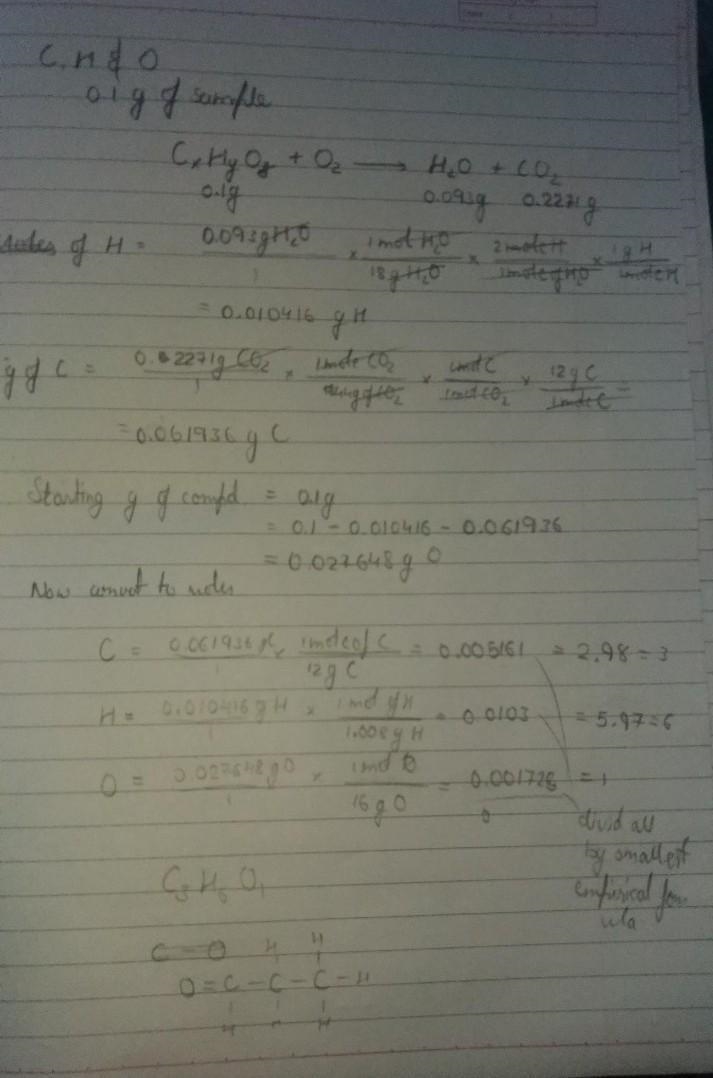 C, H & O
0.1 g of sample
CxHyOz + O2 → H2O + CO2
0.1g 0.093g 0.2271g
of H = 0.093gH2O/1 × 1mol H2O/18g H2O × 2moleH/1mole of H2O × 1g H/1moleH
= 0.010416 g H
g of C = 0.2271g CO2/1 × 1mole CO2/44g of CO2 × 1mol C/1mol CO2 × 12g C/1moleC =
= 0.061936 g C
Starting g of compd = 0.1g
= 0.1 - 0.010416 - 0.061936
= 0.027648 g O
Now convert to moles
C = 0.061936 /1 × 1mole of C/12g C = 0.005161 = 2.98 = 3
H = 0.010416 g H/1 × 1mol of H/1.008 g H = 0.0103 = 5.97 = 6
O = 0.027648 gO/1 × 1mol O/16 g O = 0.001728 = 1
divid all
by smallest
empirical form
ula
C3 H6 O1
C = O H H
O = C - C - C - H
H H